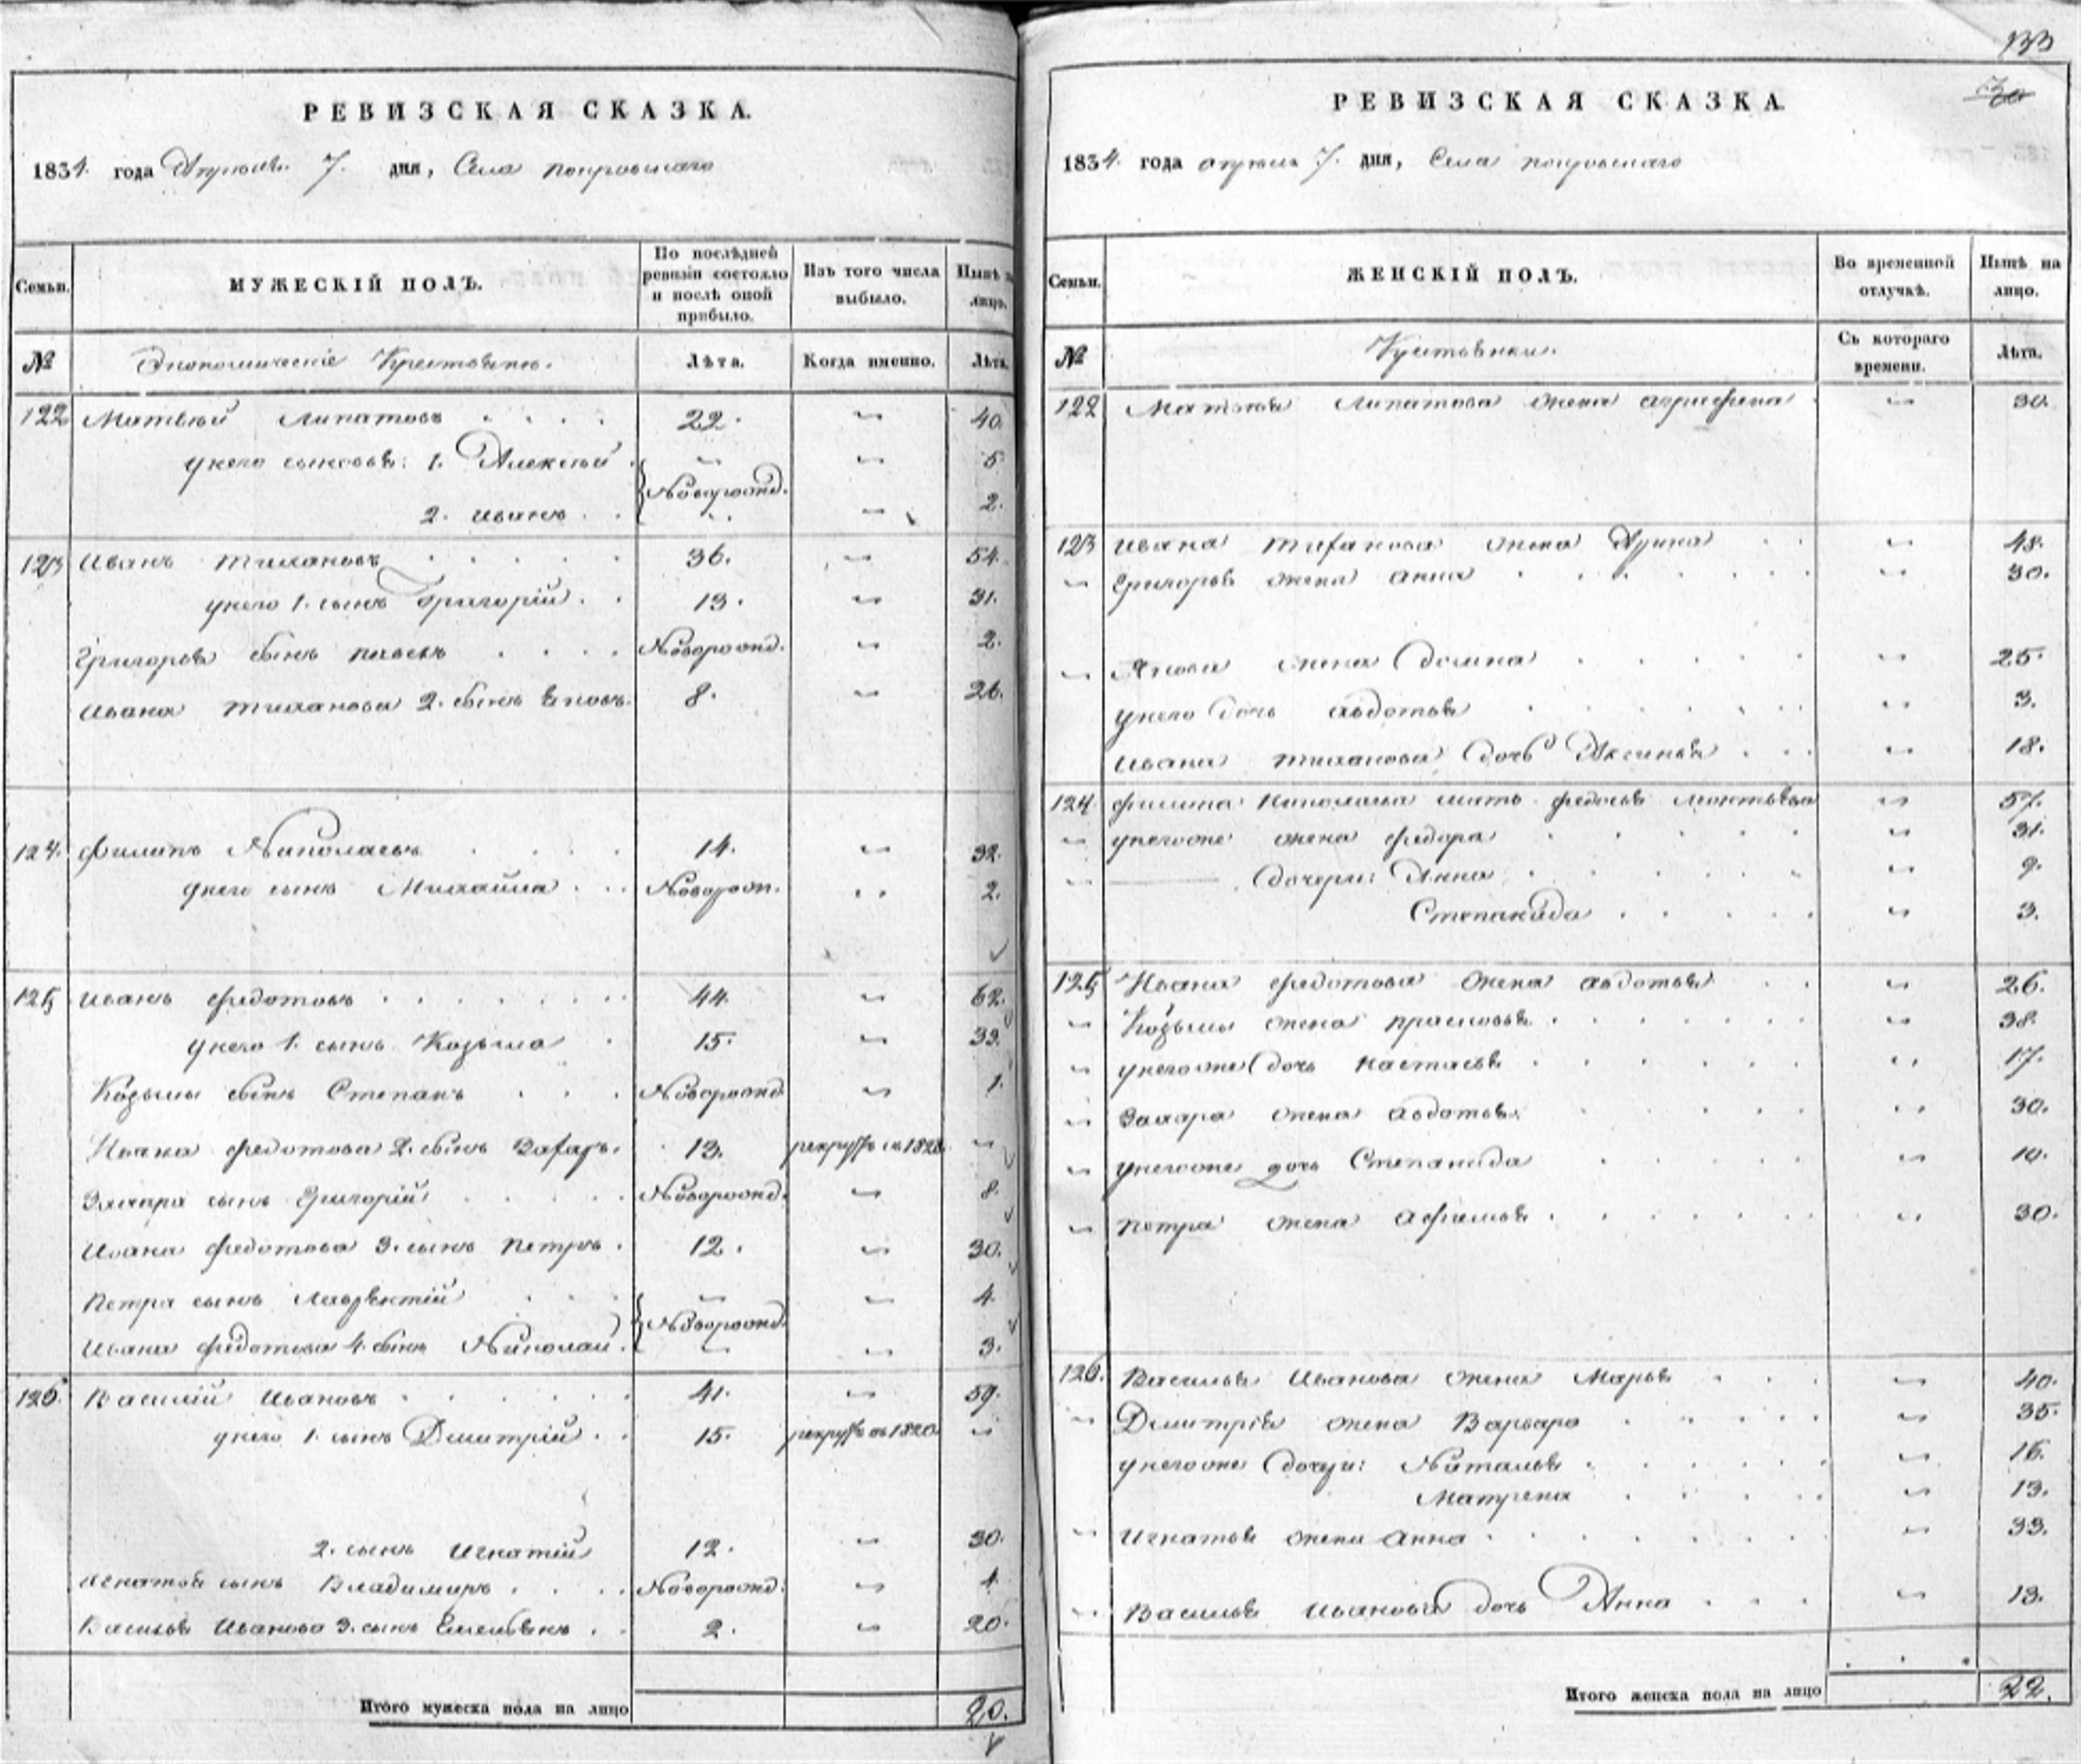 РЕВИЗСКАЯ СКАЗКА.
1834. года Апреля 7. дня, Села Покровскаго
Семьи.
МУЖЕСКІЙ ПОЛЪ.
По послѣдней ревизіи состояло и послѣ оной прибыло.
Изъ того числа выбыло.
Нынѣ на лицо.
№
Экономическіе Крестьяне.
Лѣта.
Когда именно.
Лѣта.
122 Матвей Липатовъ 22. 40.
у него сыновья: 1. Алексей 5
Новорожд.
2. Иванъ 2.
123 Иванъ Тихановъ 36. 54.
у него 1. сынъ Григорій 13. 31.
Григорья сынъ Павелъ Новорожд. 2.
Ивана Тиханова 2. сынъ Яковъ 8. 26.
124. Филипъ Николаевъ 14. 32.
у него сынъ Михайла Новорож. 2.
125 Иванъ Федотовъ 44. 62.
у него 1. сынъ Козьма 15. 33.
Козьмы сынъ Степанъ Новорожд. 1.
Ивана Федотова 2. сынъ Захаръ. 13. рекрутъ въ
Захара сынъ Григорій Новорожд. 8.
Ивана Федотова 3. сынъ Петръ. 12. 30.
Петра сынъ Лаврентій 4.
Новорожд.
Ивана Федотова 4. сынъ Николай. 3.
126. Василій Ивановъ 41. 59.
у него 1. сынъ Дмитрій 15. рекрутъ въ 1820
2. сынъ Игнатій 12. 30.
Игнатья сынъ Владимиръ Новорожд.
Василья Иванова 3. сынъ Емельянъ 2. 20.
Итого мужеска пола на лицо 20.
133
30
РЕВИЗСКАЯ СКАЗКА
1834. года апреля 7. дня, Села Покровскаго
Семьи.
ЖЕНСКІЙ ПОЛЪ.
Во временной отлучкѣ.
Нынѣ на лицо.
№
Крестьянки.
Съ котораго времени.
Лѣта.
122 Матвея Липатова жена Агрифена 30.
123 Ивана Тиханова жена Арина 48.
Григорья жена Анна 30.
Якова жена Домна 25.
у него дочь Авдотья 3.
Ивана Тиханова дочь Аксинья 18.
124. Филипа Николаева мать Федосья Леонтьева 57.
у негоже жена Федора 31.
дочери: Анна 9.
Степанида 3.
125 Ивана Федотова жена Авдотья 26.
Козьмы жена Прасковья 38.
у негоже дочь Настасья 17.
Захара жена Авдотья 30.
у негоже дочь Степанида
Петра жена Афимья 30.
126. Василья Иванова жена Марья 40.
Дмитрія жена Варвара 35.
у негоже дочери: Наталья 16.
Матрена 13.
Игнатья жена Анна 33.
Василья Иванова дочь Анна 13.
Итого женска пола на лицо 22.